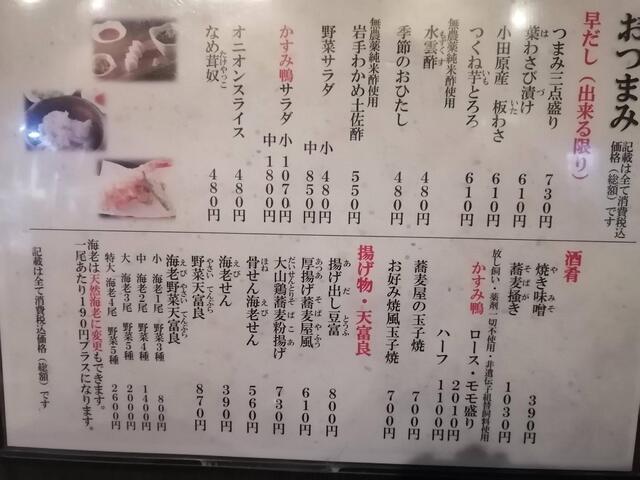 おつまみ
記載は全て消費税込
価格（総額）です
早だし（出来る限り）
つまみ三点盛り 730円
葉わさび漬け 610円
小田原産 板わさ 610円
つくね芋とろろ 610円
無農薬純米酢使用
水雲酢 480円
季節のおひたし 480円
無農薬純米酢使用
岩手わかめ土佐酢 550円
野菜サラダ 小 480円
中 850円
かすみ鴨サラダ 小 1070円
中 1800円
オニオンスライス 480円
なめ茸奴 480円
酒肴
焼き味噌 390円
蕎麦掻き 1030円
放し飼い・薬剤一切不使用・非遺伝子組替飼料使用
かすみ鴨 ロース・モモ盛り 2010円
ハーフ 1100円
蕎麦屋の玉子焼 700円
お好み焼風玉子焼 700円
揚げ物・天富良
揚げ出し豆富 800円
厚揚げ蕎麦屋風 610円
大山鶏蕎麦粉揚げ 730円
骨せん海老せん 560円
海老せん 390円
野菜天富良 870円
海老野菜天富良
小 海老1尾 野菜3種 800円
中 海老2尾 野菜4種 1400円
大 海老3尾 野菜5種 2000円
特大 海老4尾 野菜5種 2600円
海老は天然海老に変更もできます。
一尾あたり190円プラスになります。
記載は全て消費税込価格（総額）です